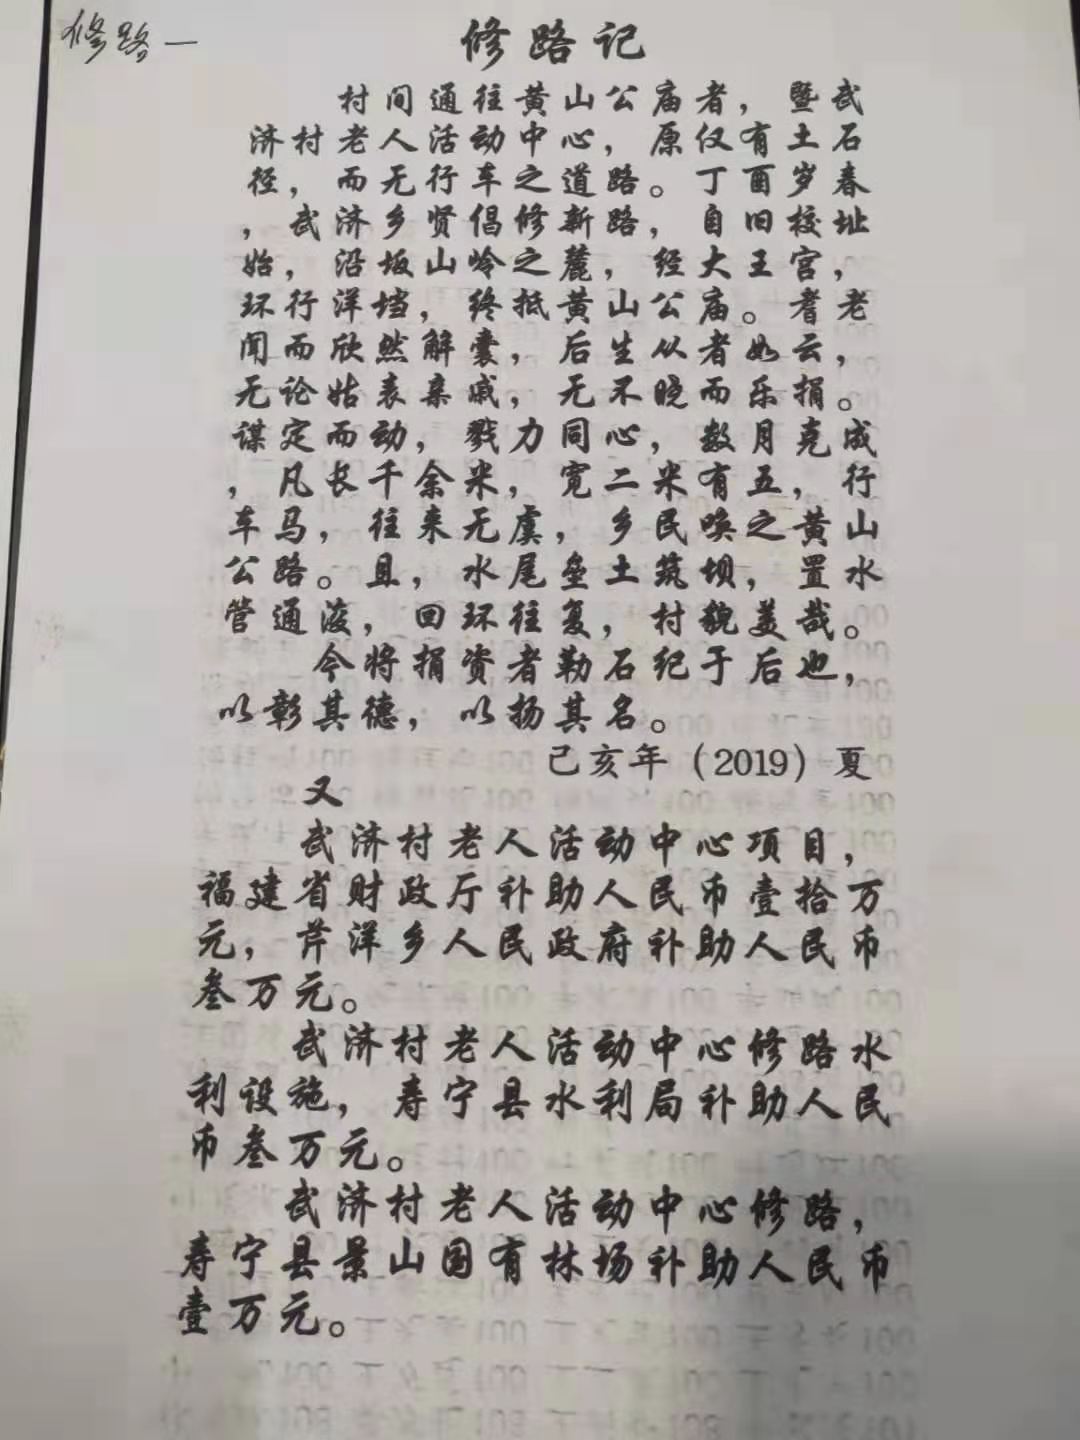 修路一
修路记
村间通往黄山公庙者，暨武
济村老人活动中心，原仅有土石
径，而无行车之道路。丁酉岁春
，武济乡贤倡修新路，自旧校址
始，沿坂山岭之麓，经大王宫，
环行洋垱，终抵黄山公庙。耆老
闻而欣然解囊，后生从者如云，
无论姑表亲戚，无不晓而乐捐。
谋定而动，戮力同心，数月克成
，凡长千余米，宽二米有五，行
车马，往来无虞，乡民唤之黄山
公路。且，水尾垒土筑坝，置水
管通浚，回环往复，村貌美哉。
今将捐资者勒石纪于后也，
以彰其德，以扬其名。
己亥年（2019）夏
又
武济村老人活动中心项目，
福建省财政厅补助人民币壹拾万
元，芹洋乡人民政府补助人民币
叁万元。
武济村老人活动中心修路水
利设施，寿宁县水利局补助人民
币叁万元。
武济村老人活动中心修路，
寿宁县景山国有林场补助人民币
壹万元。